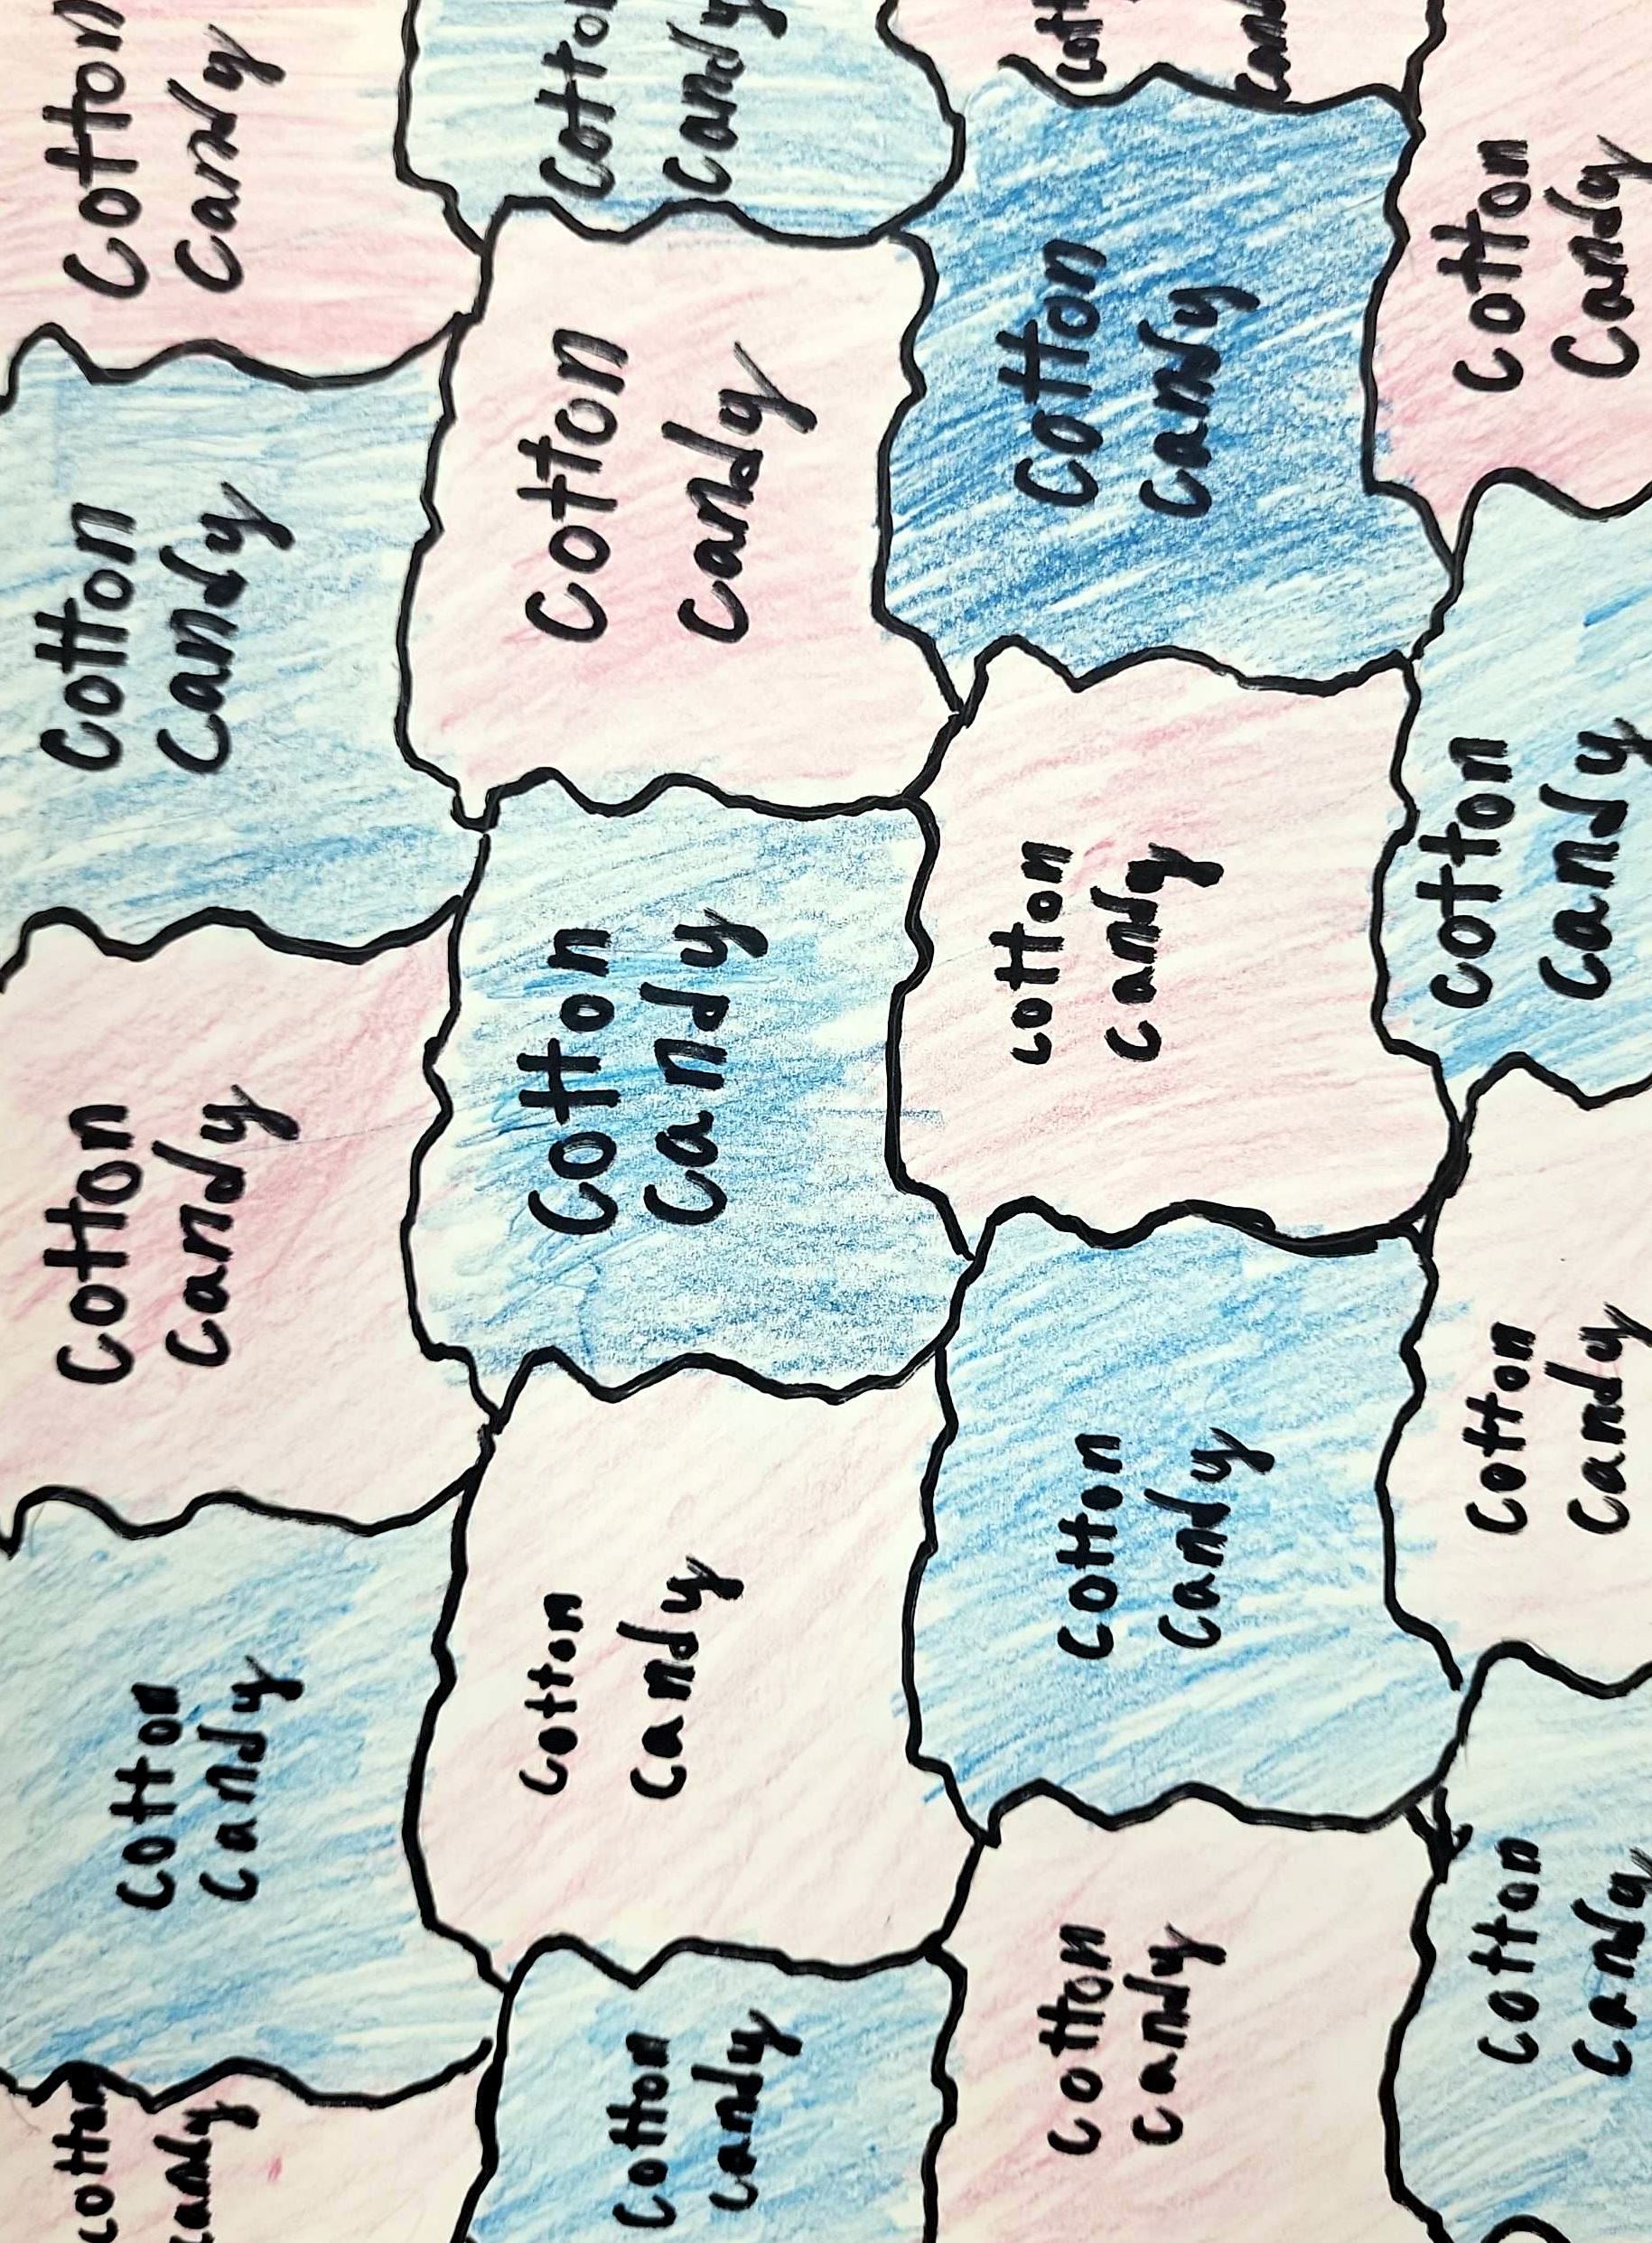 cotton
candy
Cotton
Candy
Cotton
Candy
Cotton
Candy
Cotton
Candy
Cotton
Candy
Cotton
Candy
Cotton
Candy
Cotton
Candy
Cotto
Candy
Cotton
Candy
Cotton
Candy
Cotton
Candy
Cotton
Candy
Cott
Cand
Cotton
Candy
Cotton
Candy
Cotton
Candy
Cotton
Candy